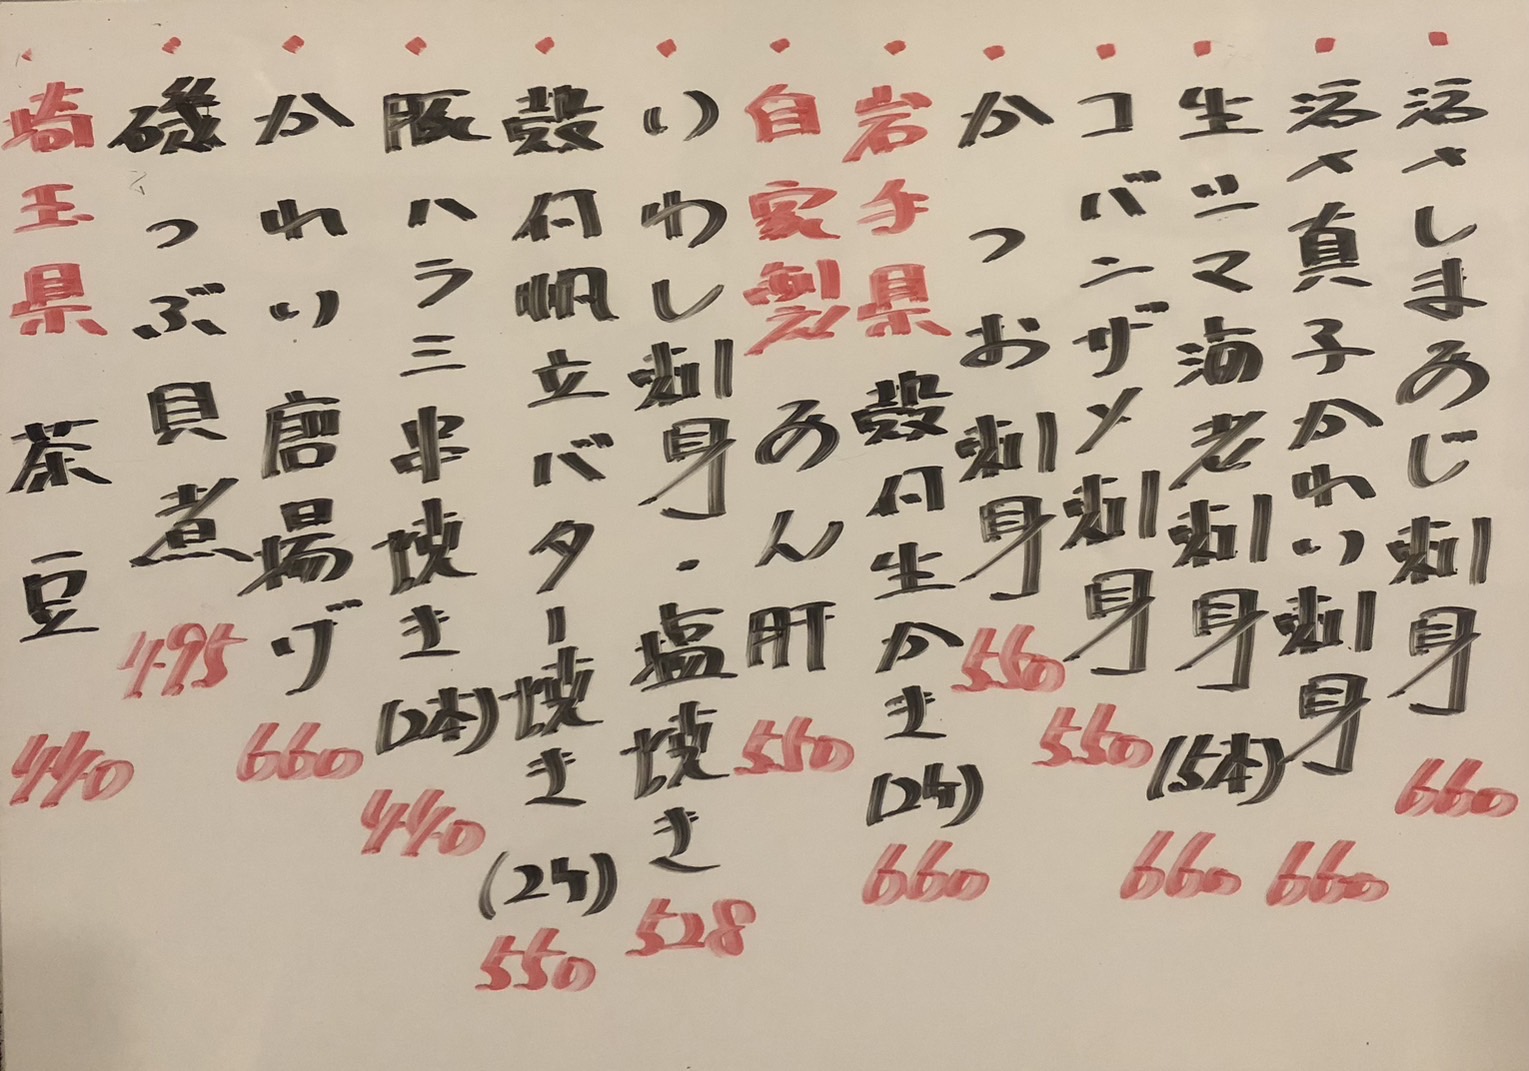 ・活〆しまあじ刺身 660
・活〆真子かわり刺身 660
・生シマ海老刺身 (5本) 660
・コバンザメ刺身 550
・かつお刺身 550
・岩手県 殻付生かき (2ケ) 660
・自家製 あん肝 550
・いわし刺身・塩焼き 528
・殻付帆立バター焼き (2ケ) 550
・豚ハラミ串焼き (2本) 440
・かれい 唐揚げ 660
・磯つぶ貝煮 495
・埼玉県 茶豆 440